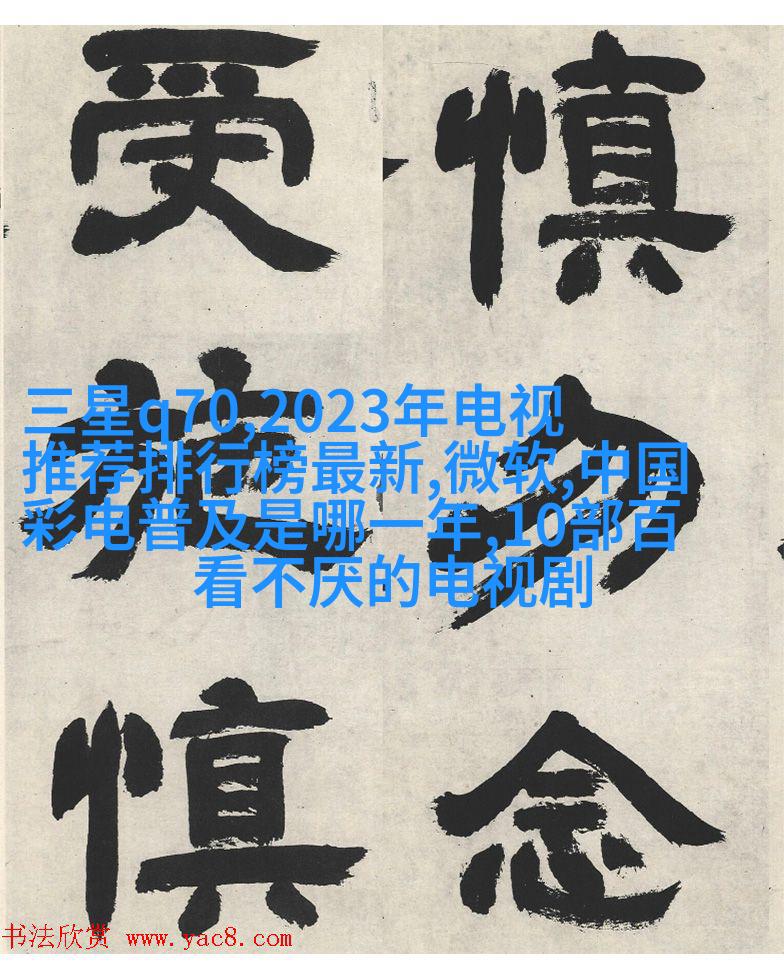 慎勿念
受施慎
三星q70,2023年电视
推荐排行榜最新,微软,中国
彩电普及是哪一年,10部百
看不厌的电视剧
书法欣赏 www.yac8.com